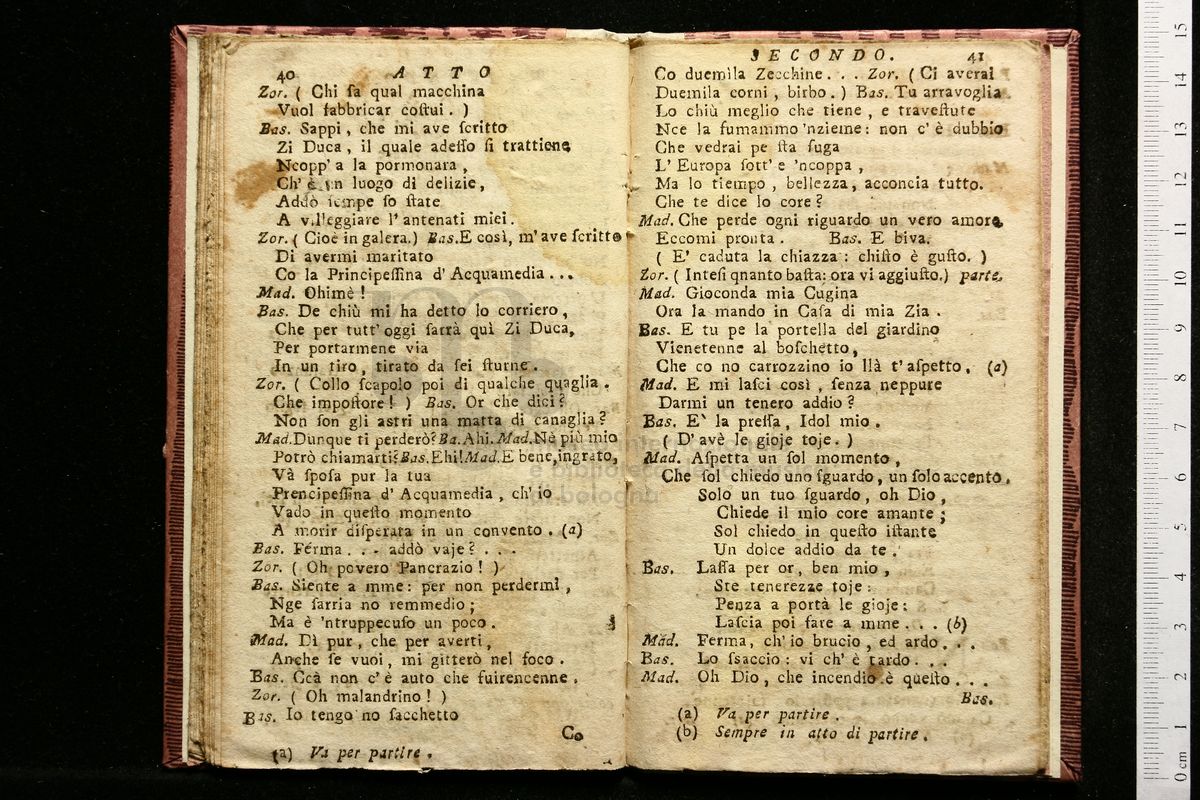 40 ATTO
Zor. ( Chi ſa qual macchina
Vuol fabbricar coſtui . )
Bas. Sappi, che mi ave ſcritto
Zi Duca, il quale adeſſo ſi trattiene
Ncopp' a la pormonara,
Ch' è un luogo di delizie,
Addò sempe ſo ſtate
A villeggiare l' antenati miei.
Zor. ( Cioè in galera.) Bas.E così, m' ave ſcritto
Di avermi maritato
Co la Principeſſina d' Acquamedia ...
Mad. Ohimè !
Bas. De chiù mi ha detto lo corriero,
Che per tutt' oggi ſarrà quì Zi Duca,
Per portarmene via
In un tiro, tirato da ſei ſturne.
Zor. ( Collo ſcapolo poi di qualche quaglia.
Che impoſtore ! ) Bas. Or che dici?
Non ſon gli astri una matta di canaglia?
Mad.Dunque ti perderò?Ba.Ahi.Mad.Nè più mio
Potrò chiamarti?Bas.Ehi!Mad.E bene,ingrato,
Và ſpoſa pur la tua
Prencipeſſina d' Acquamedia, ch' io
Vado in queſto momento
A morir diſperata in un convento. (a)
Bas. Ferma . . . addò vaje? . . .
Zor. ( Oh povero Pancrazio ! )
Bas. Siente a mme: per non perdermi,
Nge ſarria no remmedio;
Ma è 'ntruppecuſo un poco.
Mad. Dì pur, che per averti,
Anche ſe vuoi, mi gitterò nel foco.
Bas. Ccà non c' è auto che fuirencenne.
Zor. ( Oh malandrino ! )
Bas. Io tengo no ſacchetto
Co
(a) Va per partire.
SECONDO. 41
Co duemila Zecchine. . . Zor. ( Ci averai
Duemila corni, birbo. ) Bas. Tu arravoglia
Lo chiù meglio che tiene, e traveſtute
Nce la fumammo 'nzieme: non c' è dubbio
Che vedrai pe ſta fuga
L' Europa ſott' e 'ncoppa,
Ma lo tiempo, bellezza, acconcia tutto.
Che te dice lo core?
Mad. Che perde ogni riguardo un vero amore.
Eccomi pronta. Bas. E biva.
( E' caduta la chiazza: chiſto è guſto. )
Zor. ( Inteſi qnanto baſta: ora vi aggiuſto.) parte.
Mad. Gioconda mia Cugina
Ora la mando in Caſa di mia Zia.
Bas. E tu pe la portella del giardino
Vienetenne al boſchetto,
Che co no carrozzino io llà t' aſpetto. (a)
Mad. E mi laſci così, ſenza neppure
Darmi un tenero addio?
Bas. E` la preſſa, Idol mio.
( D' avè le gioje toje. )
Mad. Aſpetta un ſol momento,
Che ſol chiedo uno ſguardo, un ſolo accento.
Solo un tuo ſguardo, oh Dio,
Chiede il mio core amante;
Sol chiedo in queſto iſtante
Un dolce addio da te.
Bas. Laſſa per or, ben mio,
Ste tenerezze toje:
Penza a portà le gioje:
Laſcia poi fare a mme . . . (b)
Mad. Ferma, ch' io brucio, ed ardo. . .
Bas. Lo ſsaccio: vi ch' è tardo. . .
Mad. Oh Dio, che incendio è queſto. . .
Bas.
(a) Va per partire.
(b) Sempre in atto di partire.